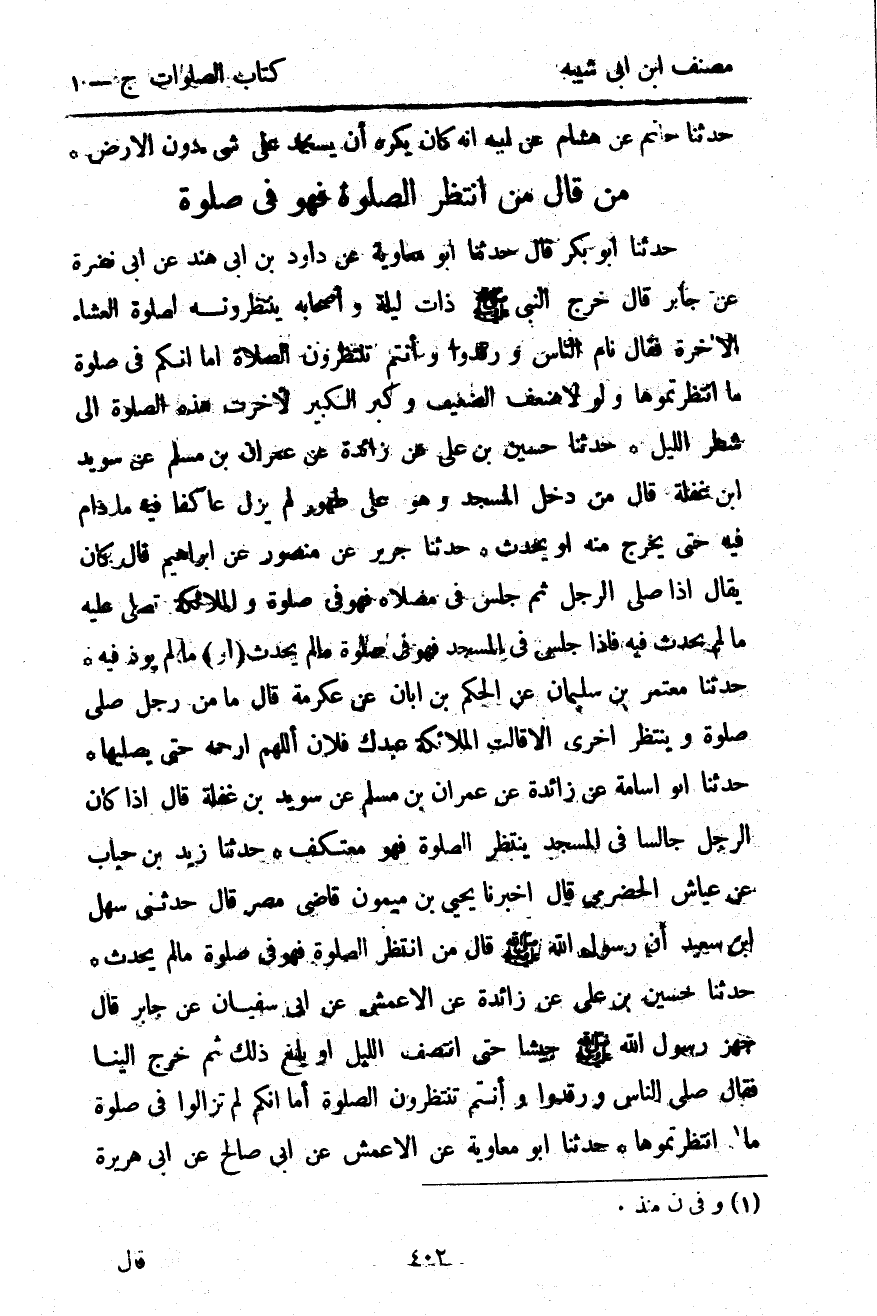 مصنف ابن ابى شيبه
كتاب الصلوات ج — ١٠
حدثنا حاتم عن هشام عن ابيه انه كان يكره أن يسجد على شى دون الارض ٥
من قال من انتظر الصلوة فهو فى صلوة
حدثنا ابو بكر قال حدثنا ابو معاوية عن داود بن ابى هند عن ابى نضرة
عن جابر قال خرج النبى ﷺ ذات ليلة و أصحابه ينتظرونـه لصلوة العشاء
الاخرة فقال نام الناس و رقدوا و أنتم تنتظرون الصلاة اما انكم فى صلوة
ما انتظرتموها و لو لا ضعف الضعيف و كبر الكبير لأخرت هذه الصلوة الى
شطر الليل ٥ حدثنا حسين بن على عن زائدة عن عمران بن مسلم عن سويد
ابن غفلة قال من دخل المسجد و هو على طهور لم يزل عاكفا فيه مادام
فيه حتى يخرج منه او يحدث ٥ حدثنا جرير عن منصور عن ابراهيم قال كان
يقال اذا صلى الرجل ثم جلس فى مصلاه فهو فى صلوة و الملائكة تصلى عليه
ما لم يحدث فيه فاذا جلس فى المسجد فهو فى صلوة مالم يحدث (او) ما لم يوذ فيه ٥
حدثنا معتمر بن سليمان عن الحكم بن ابان عن عكرمة قال ما من رجل صلى
صلوة و ينتظر اخرى الا قالت الملائكة عبدك فلان أللهم ارحمه حتى يصليها ٥
حدثنا ابو اسامة عن زائدة عن عمران بن مسلم عن سويد بن غفلة قال اذا كان
الرجل جالسا فى المسجد ينتظر الصلوة فهو معتكف ٥ حدثنا زيد بن حباب
عن عياش الحضرمى قال اخبرنا يحيى بن ميمون قاضى مصر قال حدثنى سهل
ابن سعيد أن رسول الله ﷺ قال من انتظر الصلوة فهو فى صلوة مالم يحدث ٥
حدثنا حسين بن على عن زائدة عن الاعمش عن ابى سفيان عن جابر قال
جهز رسول الله ﷺ جيشا حتى انتصف الليل او بلغ ذلك ثم خرج الينا
فقال صلى الناس و رقدوا و أنتم تنتظرون الصلوة أما انكم لم تزالوا فى صلوة
ما١ انتظرتموها ٥ حدثنا ابو معاوية عن الاعمش عن ابى صالح عن ابى هريرة
(١) و فى ن منذ .
٤٠٢
قال